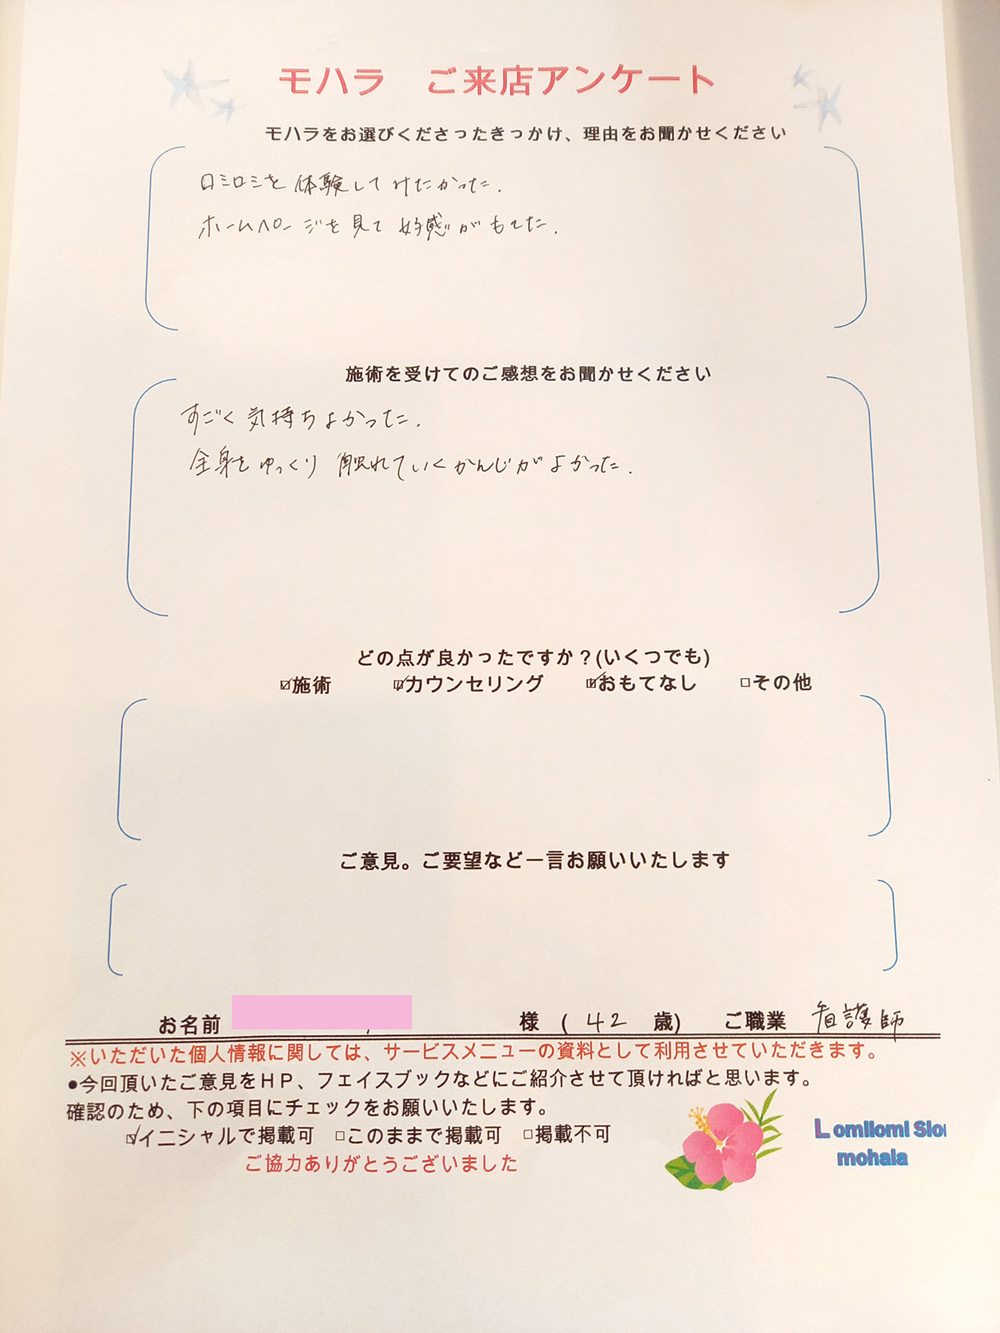 モハラ　ご来店アンケート
モハラをお選びくださったきっかけ、理由をお聞かせください
ロミロミを体験してみたかった.
ホームページを見て好感がもてた.
施術を受けてのご感想をお聞かせください
すごく気持ちよかった.
全身をゆっくり触れていくかんじがよかった.
どの点が良かったですか？(いくつでも)
☑施術　☑カウンセリング　☑おもてなし　□その他
ご意見。ご要望など一言お願いいたします
お名前　様　(　42　歳)　ご職業　看護師
※いただいた個人情報に関しては、サービスメニューの資料として利用させていただきます。
●今回頂いたご意見をＨＰ、フェイスブックなどにご紹介させて頂ければと思います。
確認のため、下の項目にチェックをお願いいたします。
☑イニシャルで掲載可　□このままで掲載可　□掲載不可
ご協力ありがとうございました
Lomilomi Slo
mohala